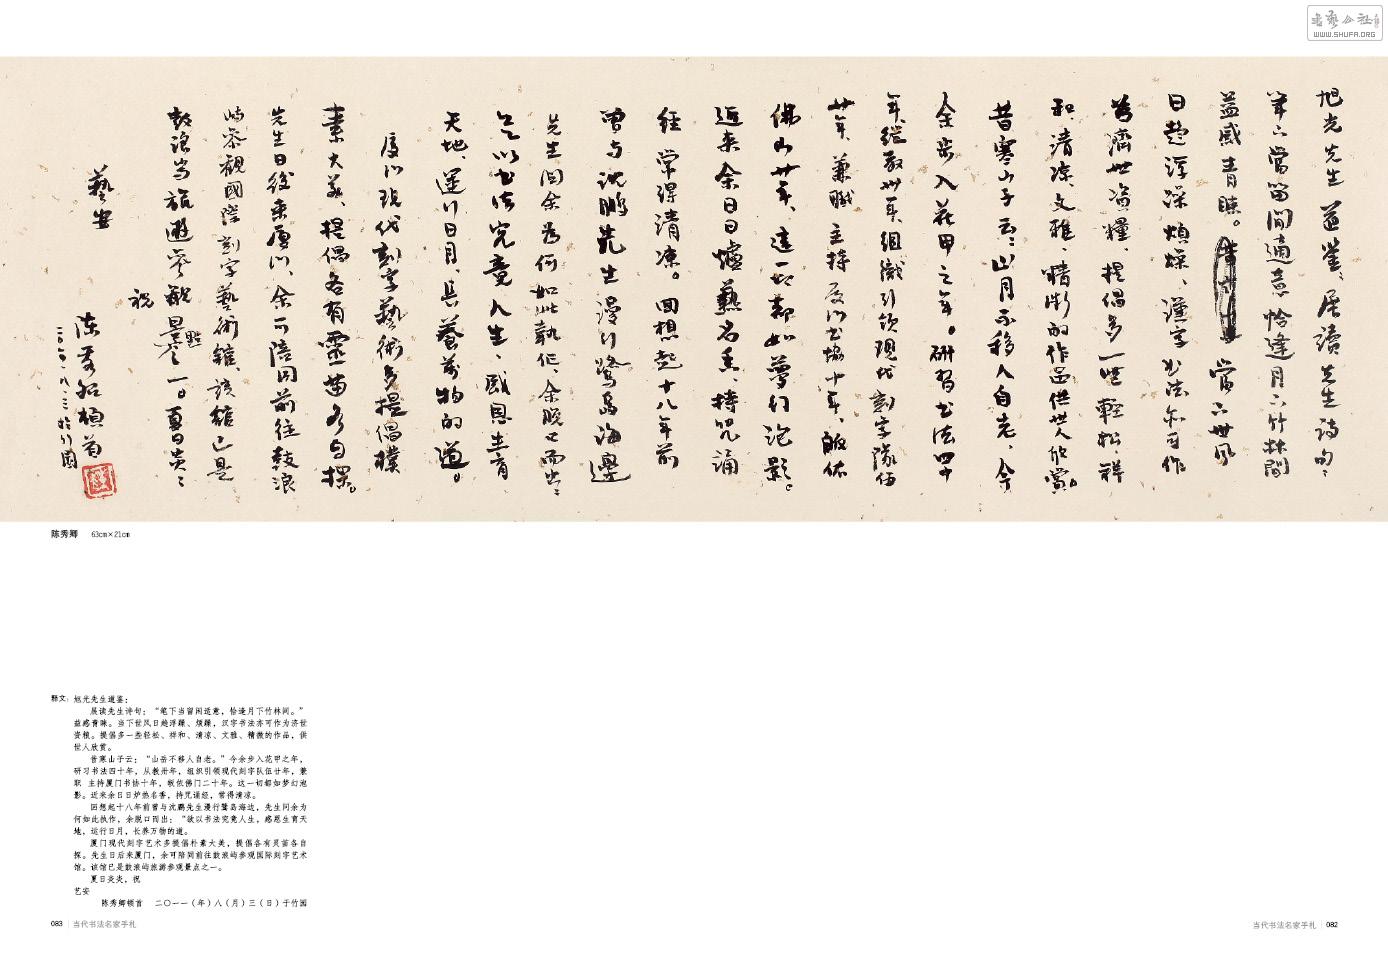 书艺公社
WWW.SHUFA.ORG
旭光先生道鉴、展读先生诗句：
筆下當留閒適意恰逢月下竹林間
益感青睐。當下世风
日趋浮躁、烦燥、漢字书法亦可作
為濟世資糧、提倡多一些輕松、祥
和、清凉、文雅、精微的作品供世人欣賞。
昔寒山子云：山月不移人自老、今
余步入花甲之年。研習书法四十
年、从教卅年、組織引领現代刻字隊伍
廿年、兼職主持厦门书协十年、皈依
佛门廿年、這一切都如夢幻泡影。
近来余日日爐热名香、持咒誦
经常得清凉。回想起十八年前
曾与沈鹏先生漫行鹭岛海邊
先生问余為何如此執作、余脱口而出：
欲以书法究竟人生、感恩生育
天地、運行日月、長養万物的道。
厦门現代刻字藝術多提倡樸
素大美、提倡各有靈苗各自探。
先生日後来厦门、余可陪同前往鼓浪
屿參觀國際刻字藝術館、該館已是
鼓浪屿旅遊參觀景點之一。夏日炎炎
祝
藝安
陈秀卿頓首
二〇一一、八、三於竹園
陈秀卿 63cm×21cm
释文：旭光先生道鉴：
展读先生诗句：“笔下当留闲适意，恰逢月下竹林间。”
益感青睐。当下世风日趋浮躁、烦躁，汉字书法亦可作为济世
资粮。提倡多一些轻松、祥和、清凉、文雅、精微的作品，供
世人欣赏。
昔寒山子云：“山岳不移人自老。”今余步入花甲之年，
研习书法四十年，从教卅年，组织引领现代刻字队伍廿年，兼
职 主持厦门书协十年，皈依佛门二十年。这一切都如梦幻泡
影。近来余日日炉热名香，持咒诵经，常得清凉。
回想起十八年前曾与沈鹏先生漫行鹭岛海边，先生问余为
何如此执作，余脱口而出：“欲以书法究竟人生，感恩生育天
地，运行日月，长养万物的道。
厦门现代刻字艺术多提倡朴素大美，提倡各有灵苗各自
探。先生日后来厦门，余可陪同前往鼓浪屿参观国际刻字艺术
馆。该馆已是鼓浪屿旅游参观景点之一。
夏日炎炎，祝
艺安
陈秀卿顿首 二〇一一（年）八（月）三（日）于竹园
083 当代书法名家手札
当代书法名家手札 082